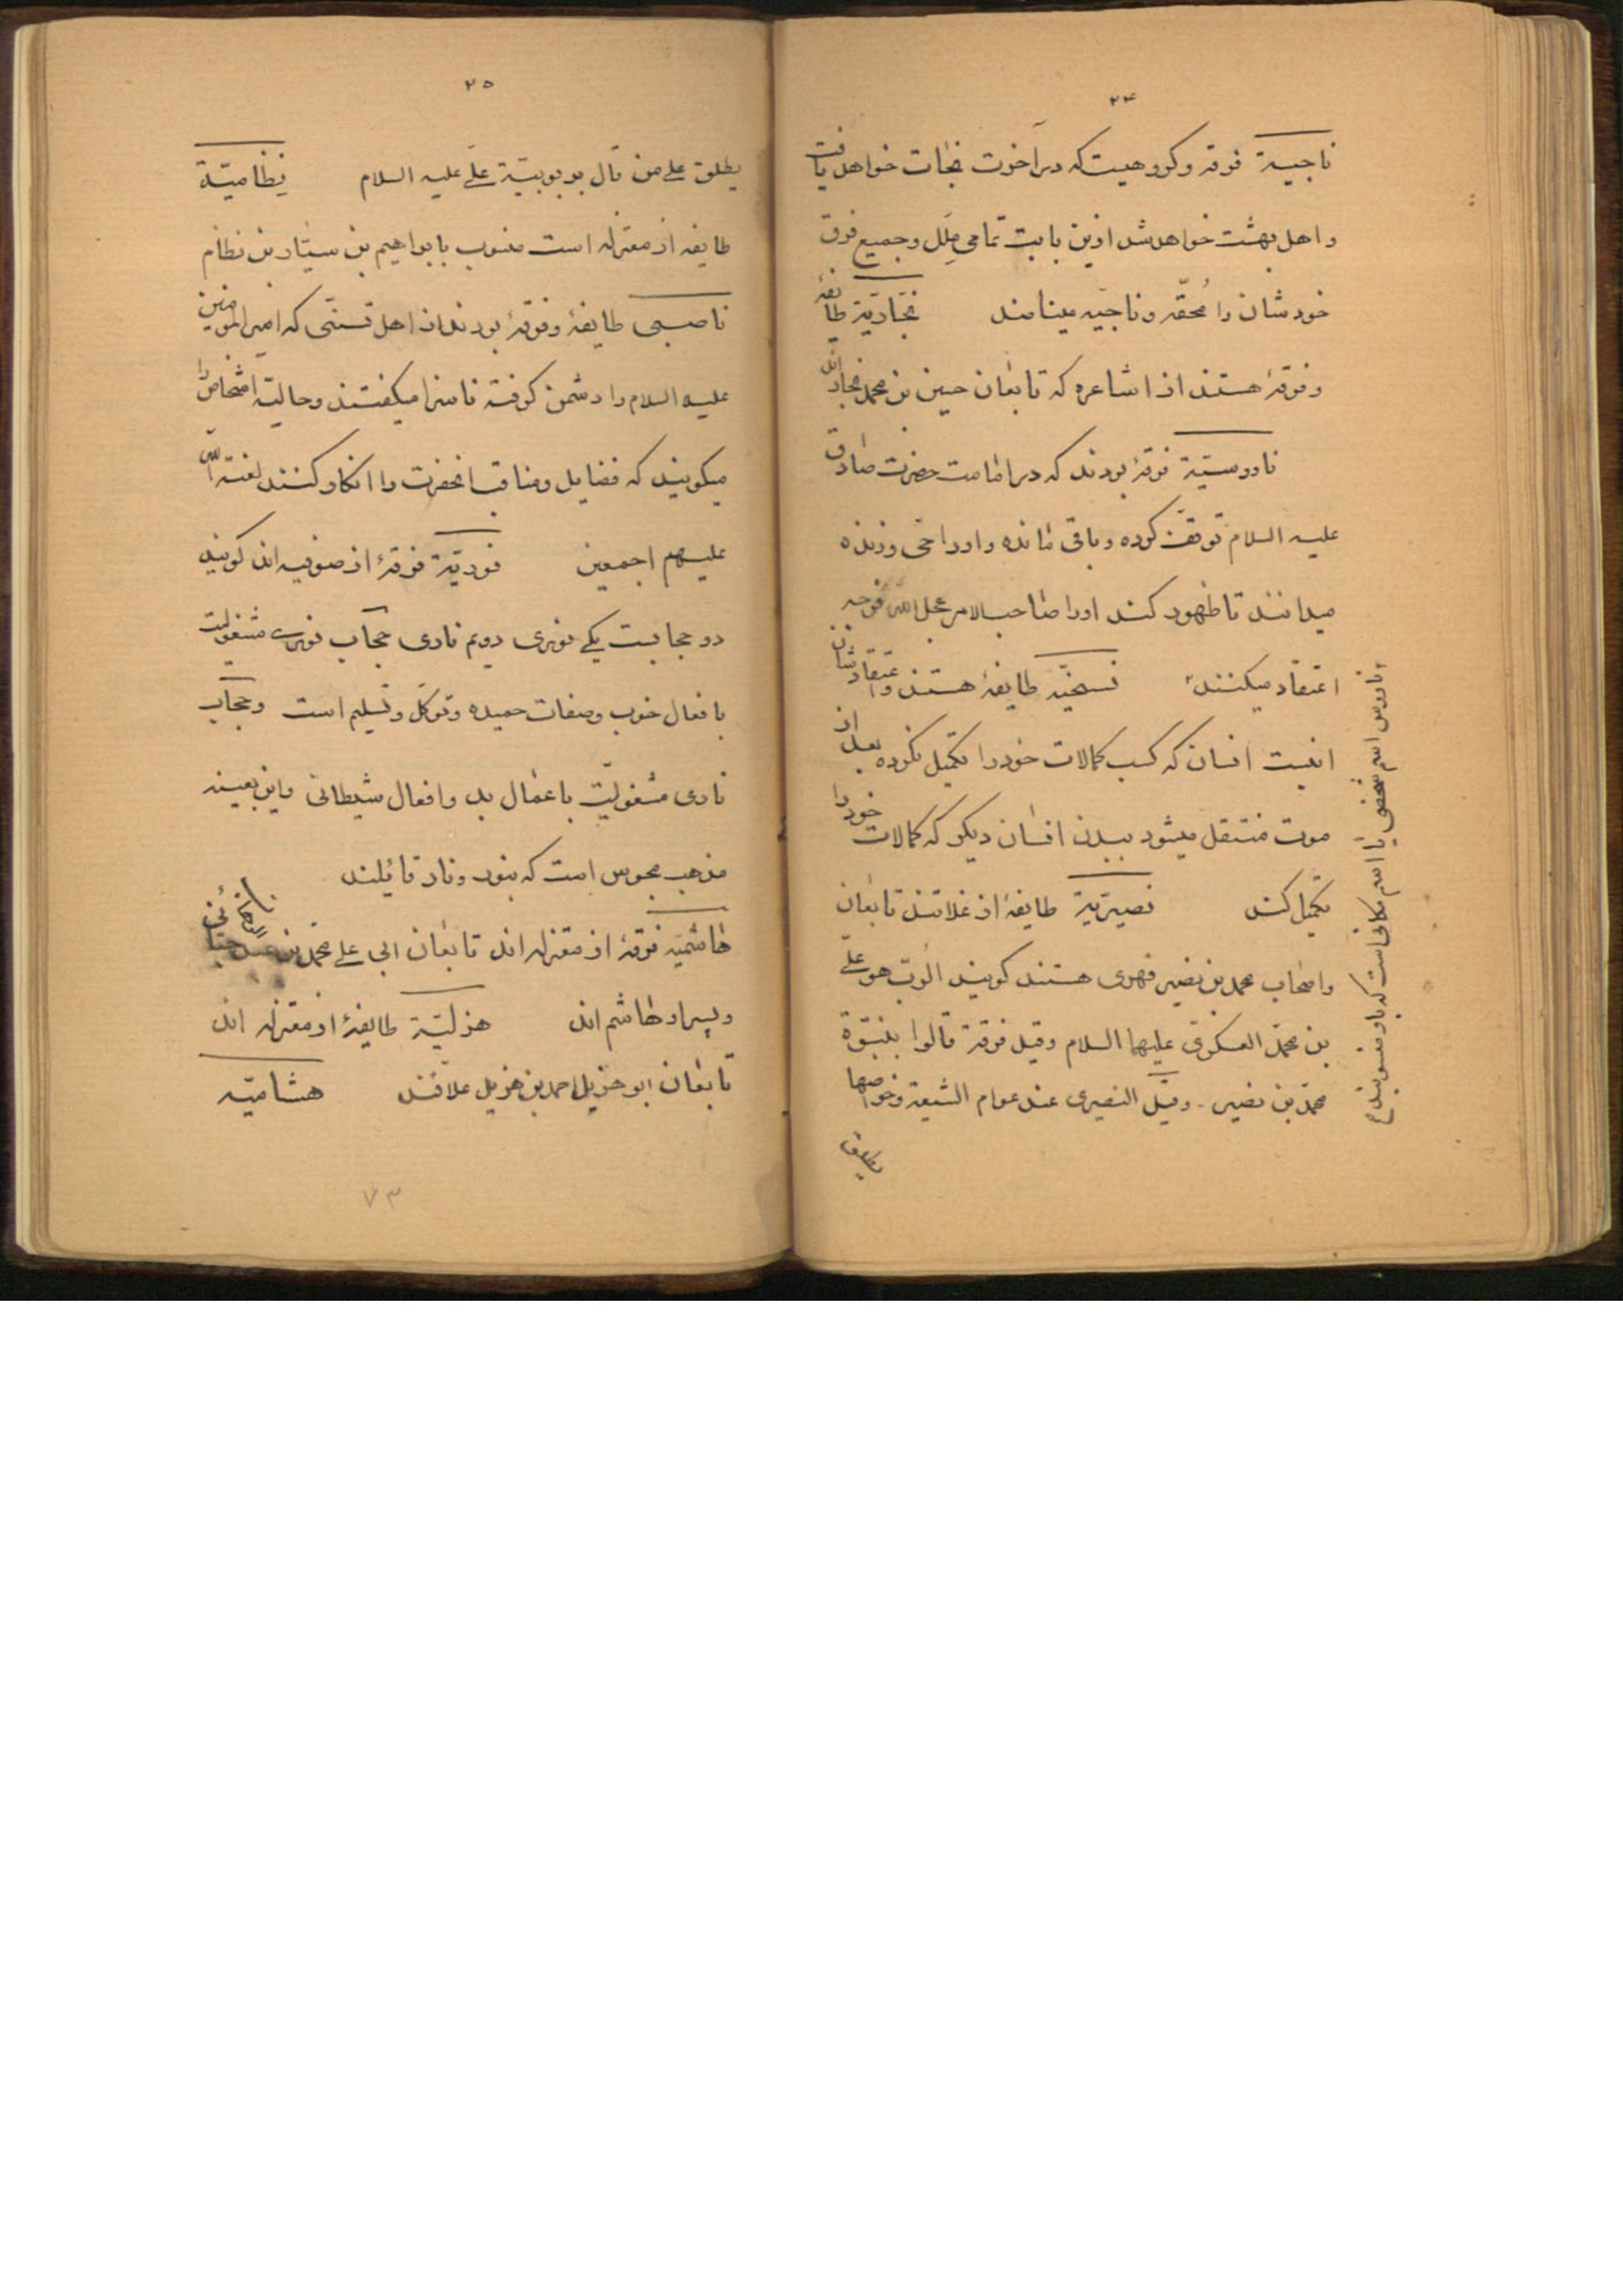 ۲۴
ناجیة فرقه و گروهیست که در آخرت نجات خواهد یافت
و اهل بهشت خواهد شد ازین بابت تمامی مِلَل و جمیع فرق
خودشان را مُحقّه و ناجیّه مینامند نجّاریّة طایفهٔ
و فرقهٔ هستند از اشاعره که تابعان حسین بن محمد نجار اند
ناووسیّة فرقهٔ بودند که در امامت حضرت صادق
علیه السلام توقف کرده و باقی مانده و او را حی و زنده
میدانند تا ظهور کند او را صاحب الامر عجل الله فرجه
اعتقاد میکنند نسخیّه طایفهٔ هستند و اعتقادشان
اینست انسان که کسب کمالات خود را تکمیل نکرده بعد از
موت منتقل میشود ببدن انسان دیگر که کمالات خود را
تکمیل کند نصیریّة طایفهٔ از غلاتند تابعان
و اصحاب محمد بن نصیر فهری هستند گویند الرّب هو علی
بن محمّد العسکری علیهما السلام وقیل فرقة قالوا بنبوّة
محمّد بن نصیر وقیل النصیری عند عوام الشیعة وخواصها
یطلق
ناووس اسم شخصی یا اسم مکانی است که باو منسوبند
۲۵
یطلق علی من قال بربوبیّة علی علیه السلام نظامیّة
طایفه از معتزله است منسوب بابراهیم بن سیّار بن نظام
ناصبی طایفهٔ و فرقهٔ بودند از اهل تسنّی که امیر المومنین
علیه السلام را دشمن گرفته ناسزا میگفتند و حالیه اشخاص را
میگویند که فضایل و مناقب انحضرت را انکار کنند لعنة الله
علیهم اجمعین نوریّة فرقهٔ از صوفیه اند گویند
دو حجابست یکی نوری دویم ناری حجاب نوری مشغولیت
بافعال خوب و صفات حمیده و توکل و تسلیم است و حجاب
ناری مشغولیّت باعمال بد و افعال شیطانی و این بعینه
مذهب مجوس است که بنور و نار قائلند
هاشمیّه فرقهٔ از معتزله اند تابعان ابی علی محمّد بن
و پسر او هاشم اند هزلیّة طایفهٔ از معتزله اند
تابعان ابو هزیل احمد بن هزیل علافند هشامیّه
۷۳